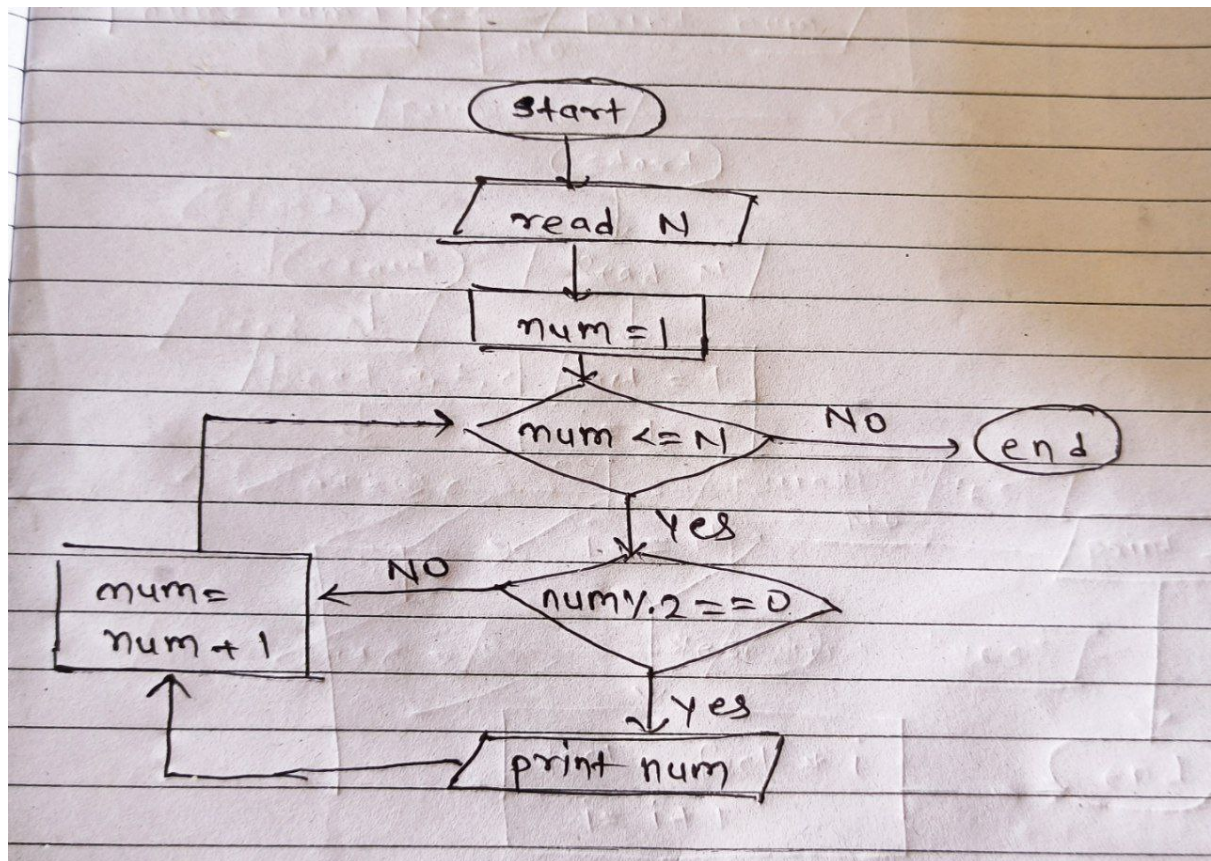 start
read N
num = 1
num <= N
NO
end
Yes
NO
num =
num + 1
num % 2 == 0
Yes
print num